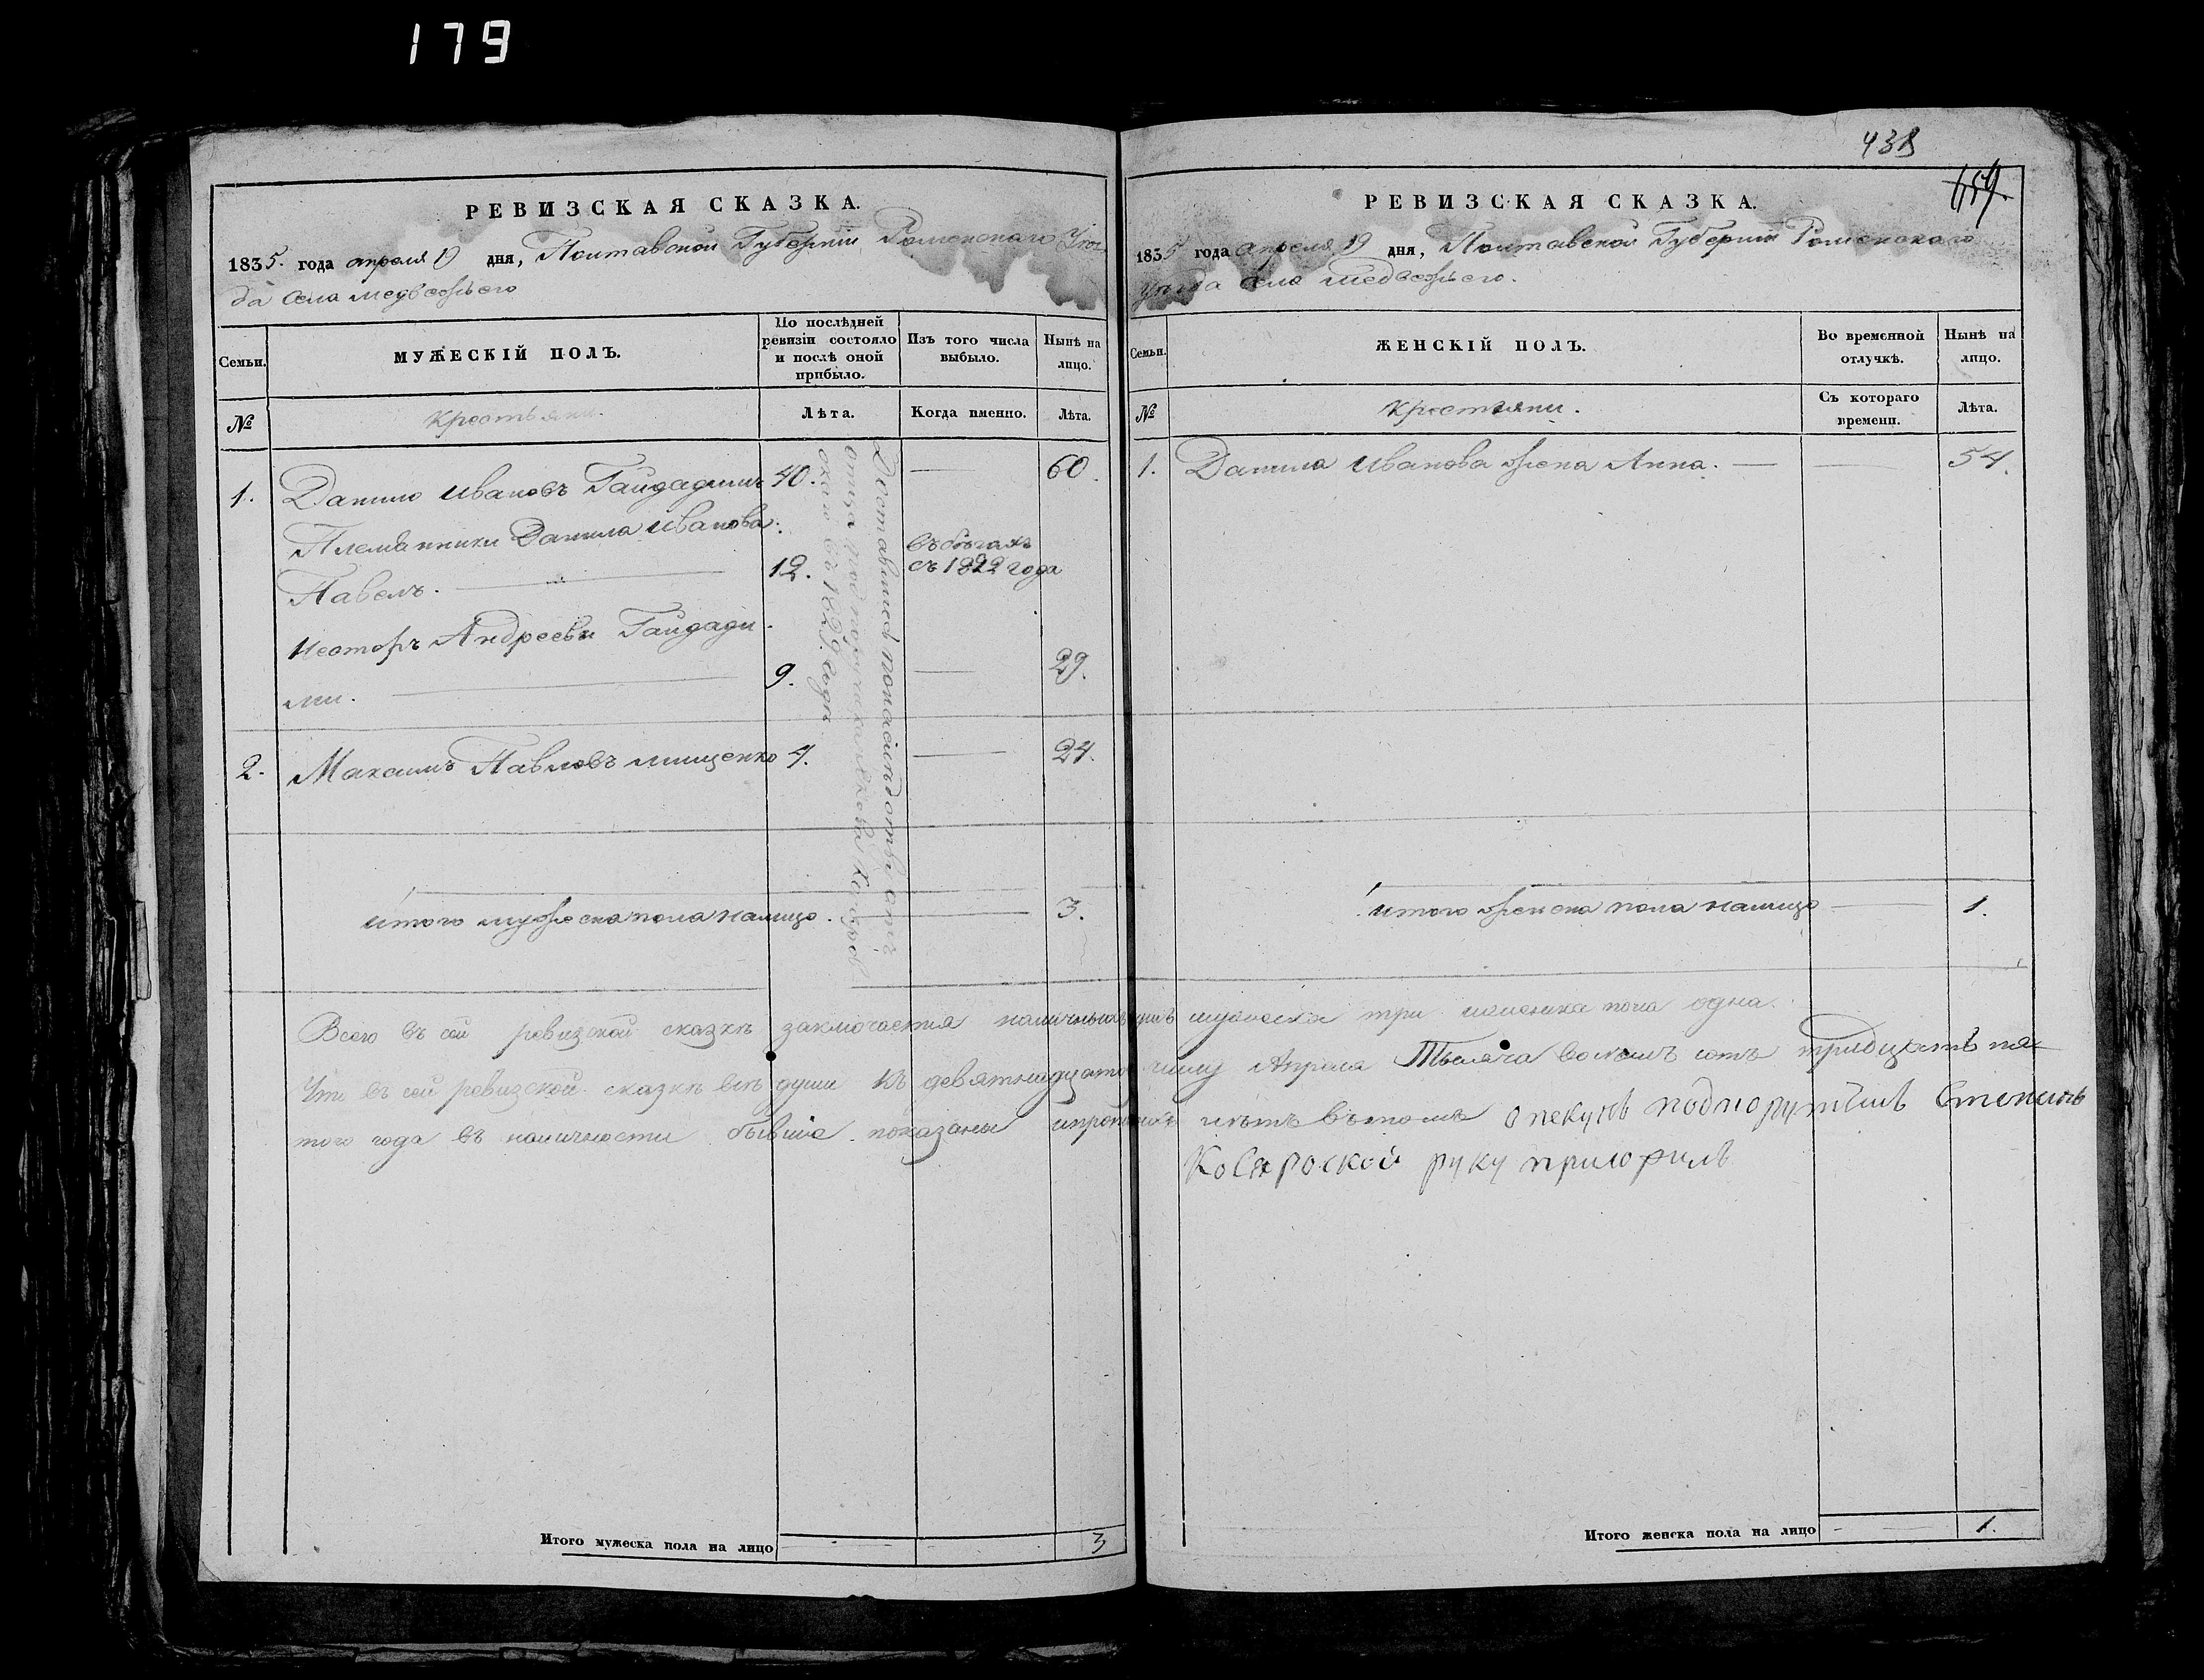 179
РЕВИЗСКАЯ СКАЗКА.
1835. года апреля 19 дня, Полтавской Губернии Роменского Уез
да села медвежьего
Семьи.
МУЖЕСКІЙ ПОЛЪ.
По послѣдней ревизіи состояло и послѣ оной прибыло.
Изъ того числа выбыло.
Нынѣ на лицо.
№
Крестьяни.
Лѣта.
Когда именно.
Лѣта.
1. Данило Ивановъ Гайдадимъ 40. 60.
Племянники Данила Иванова:
Павелъ. 12. въ бѣгахъ съ 1822 года
Несторъ Андреевы Гайдади
ми. 9. 29.
2. Максимъ Павловъ мищенко 4. 24.
Доставшиеся помещику от
отца
в 1829 года
итого мужеска пола налицо. 3.
Итого мужеска пола на лицо 3
438
659.
РЕВИЗСКАЯ СКАЗКА.
1835 года апреля 19 дня, Полтавской Губернии Роменского
уезда села медвежьего.
Семьи.
ЖЕНСКІЙ ПОЛЪ.
Во временной отлучкѣ.
Нынѣ на лицо.
№
Крестьяни.
Съ котораго времени.
Лѣта.
1. Данила Иванова жена Анна. 54.
итого женска пола налицо 1.
Всего въ сей ревизской сказкѣ заключается наличныхъ душъ мужеска три женска пола одна.
Что въ сей ревизской сказкѣ всѣ души къ девятнадцато числу Апреля Тысяча восемь сотъ тридцать пя
того года въ наличности бывшие показаны и прописныхъ нѣтъ въ томъ опекунъ подпоручикъ Степанъ
руку приложилъ
Итого женска пола на лицо 1.